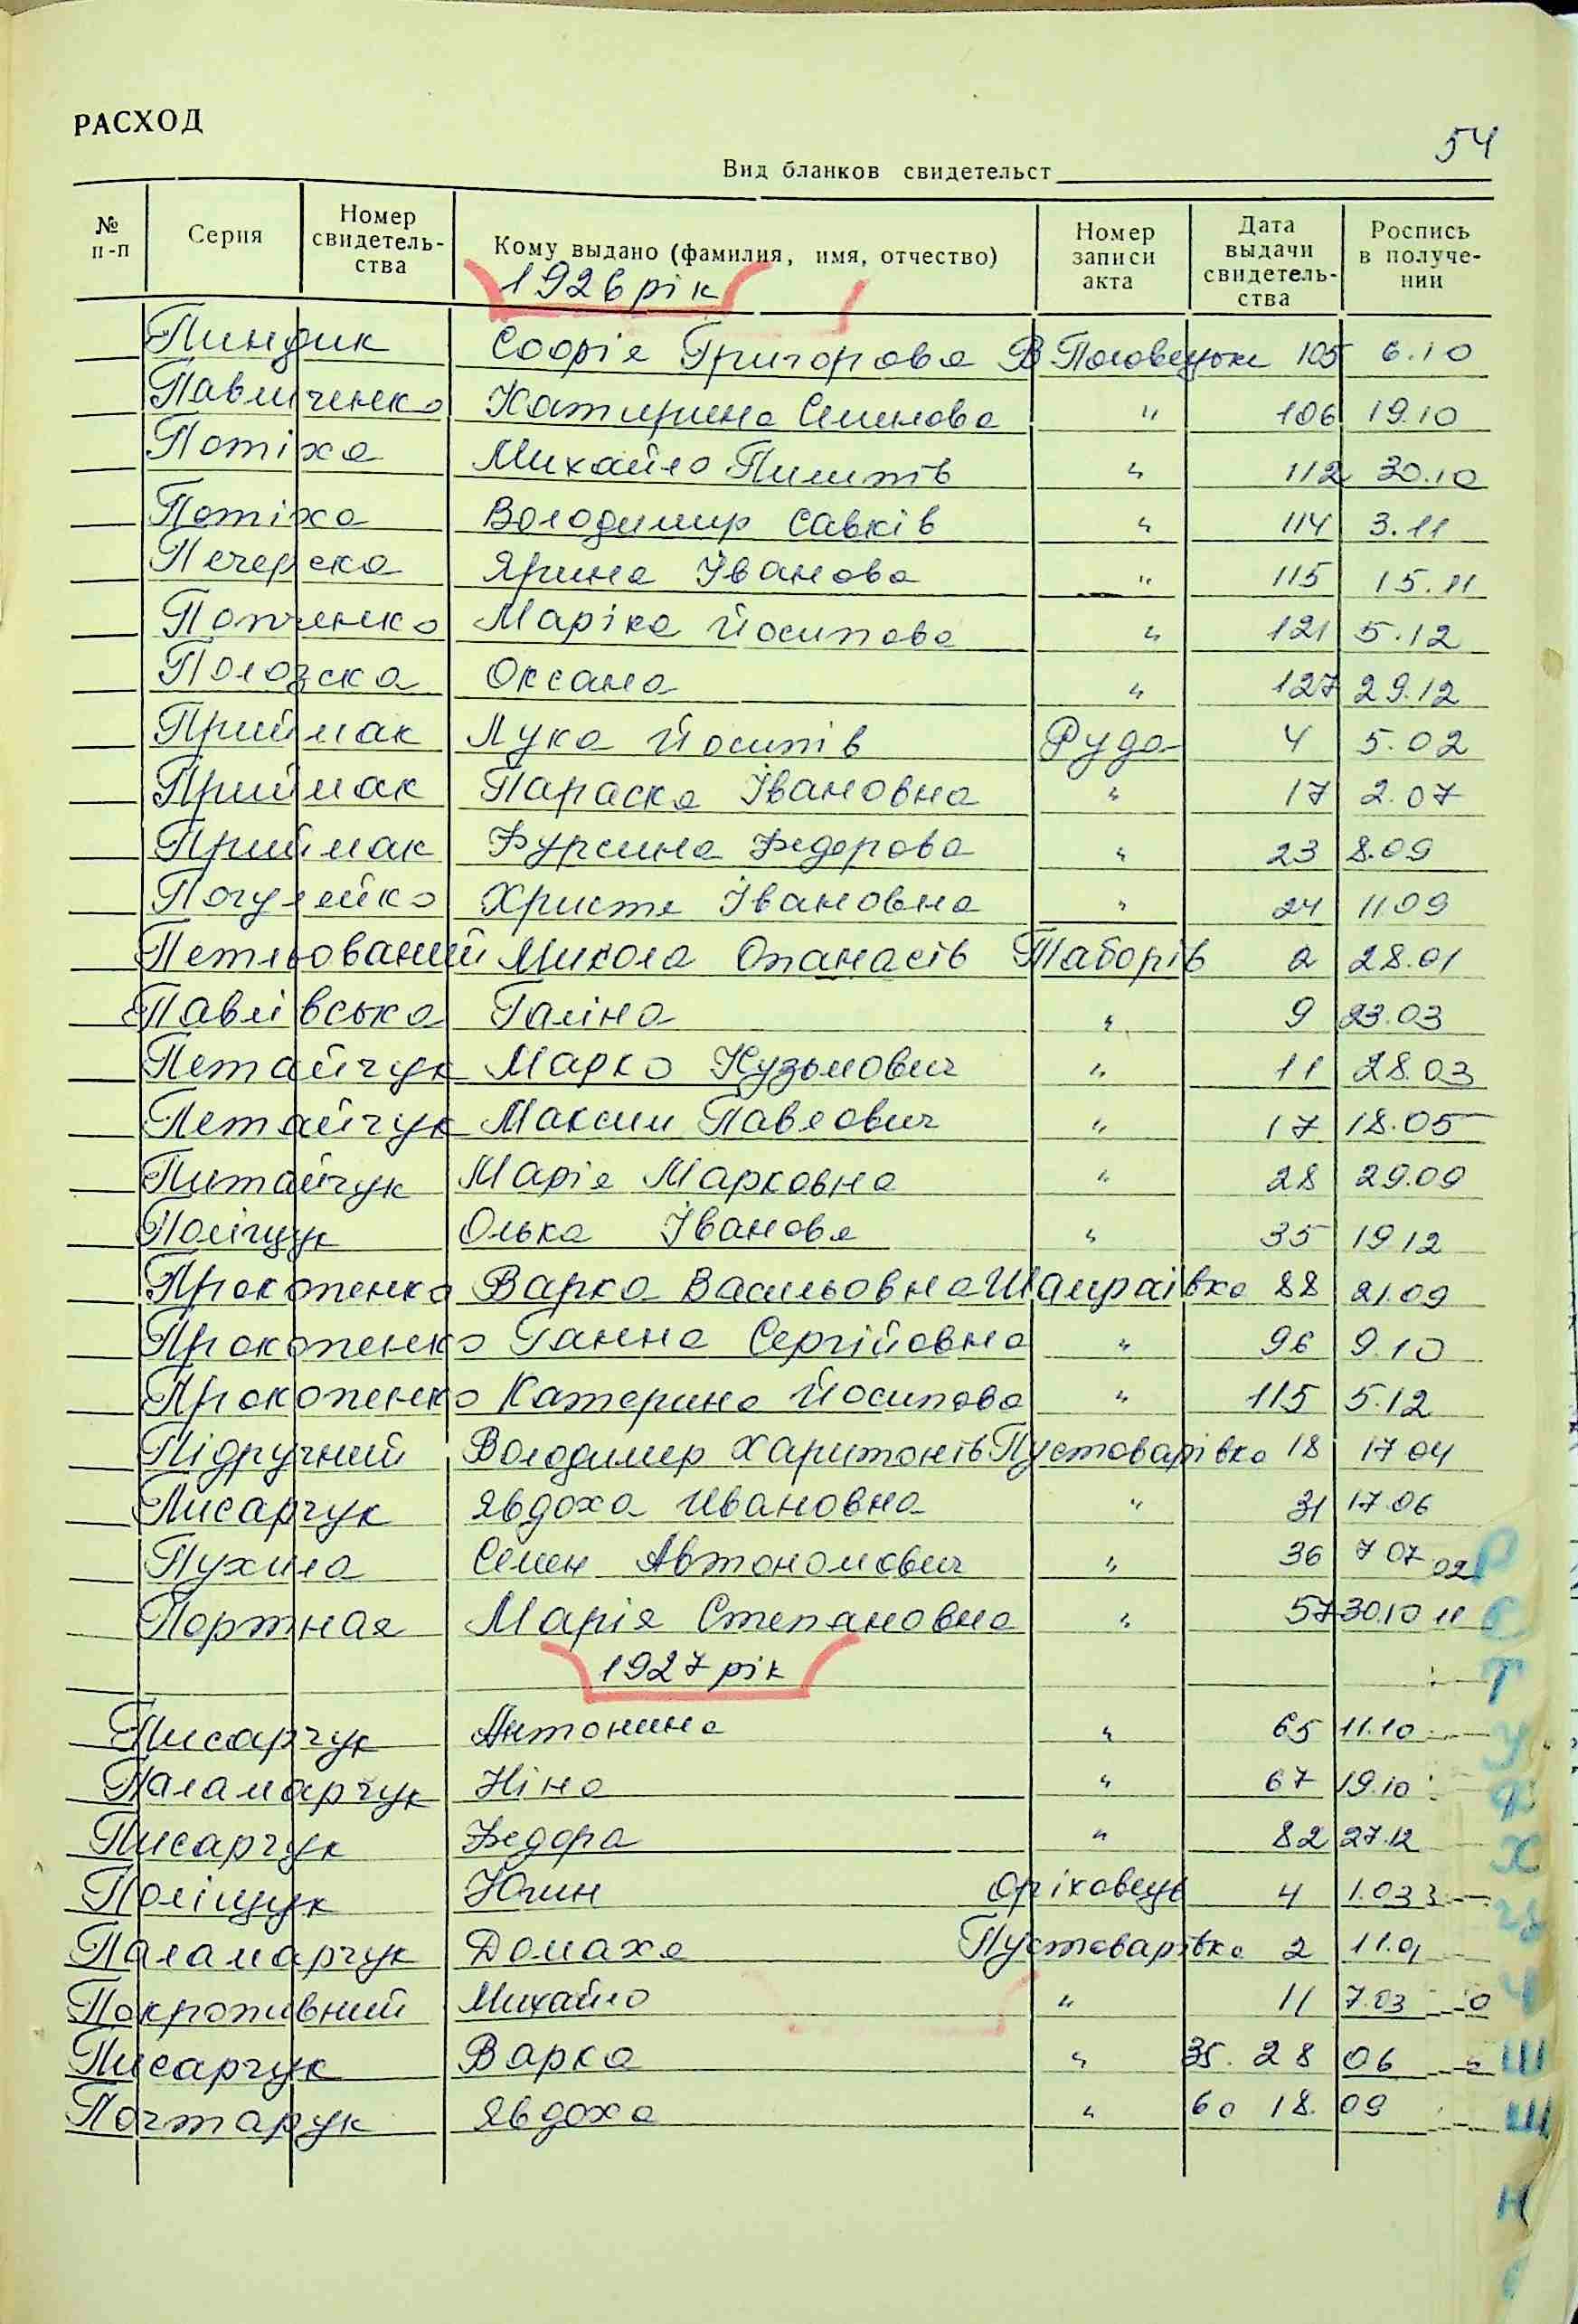 РАСХОД
54
Вид бланков свидетельст
№ п-п Серия Номер свидетель-ства Кому выдано (фамилия, имя, отчество) Номер записи акта Дата выдачи свидетель-ства Роспись в получе-нии
1926 рік
Пиндик Софія Григорова В Половецьке 105 6.10
Павличенко Катирина Симнова " 106 19.10
Потіха Михайло Пилипів " 112 30.10
Потіха Володимир Савків " 114 3.11
Печерска Ярина Іванова " 115 15.11
Попченко Маріка Йосипова " 121 5.12
Полозска Оксана " 127 29.12
Приймак Лука Йосипів Руда 4 5.02
Приймак Параска Івановна " 17 2.07
Приймак Фурсина Федорова " 23 8.09
Погулейко Христя Івановна " 24 11 09
Петльований Микола Опанасів Таборів 2 28.01
Павлівська Галіна " 9 23.03
Петайчук Марко Кузьмович " 11 28.03
Петайчук Максим Павлович " 17 18.05
Питайчук Марія Марковна " 28 29.09
Поліщук Олька Іванова " 35 19 12
Прокопенко Варка Васильовна Шамраївка 88 21.09
Прокопенко Ганна Сергійовна " 96 9.10
Прокопенко Катерина Йосипова " 115 5.12
Підручний Володимир Харитонів Пустоварівка 18 17 04
Писарчук Явдоха Ивановна " 31 17.06
Пухила Семен Автономович " 36 7 07 02
Портная Марія Степановна " 57 30.10 11
1927 рік
Писарчук Антонина " 65 11.10
Паламарчук Ніна " 67 19.10
Писарчук Федора " 82 27.12
Поліщук Юхин Оріховець 4 1.03 3
Паламарчук Домаха Пустоварівка 2 11.01
Покропивний Михайло " 11 7.03 0
Писарчук Варка " 35. 28 06
Почтарук Явдоха " 60 18. 09
Р
С
Т
У
Ф
Х
Ч
Ш
Щ